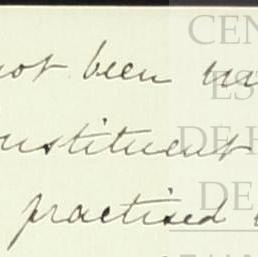 not been
nstituent
practised
CEN
ES
DE H
DE